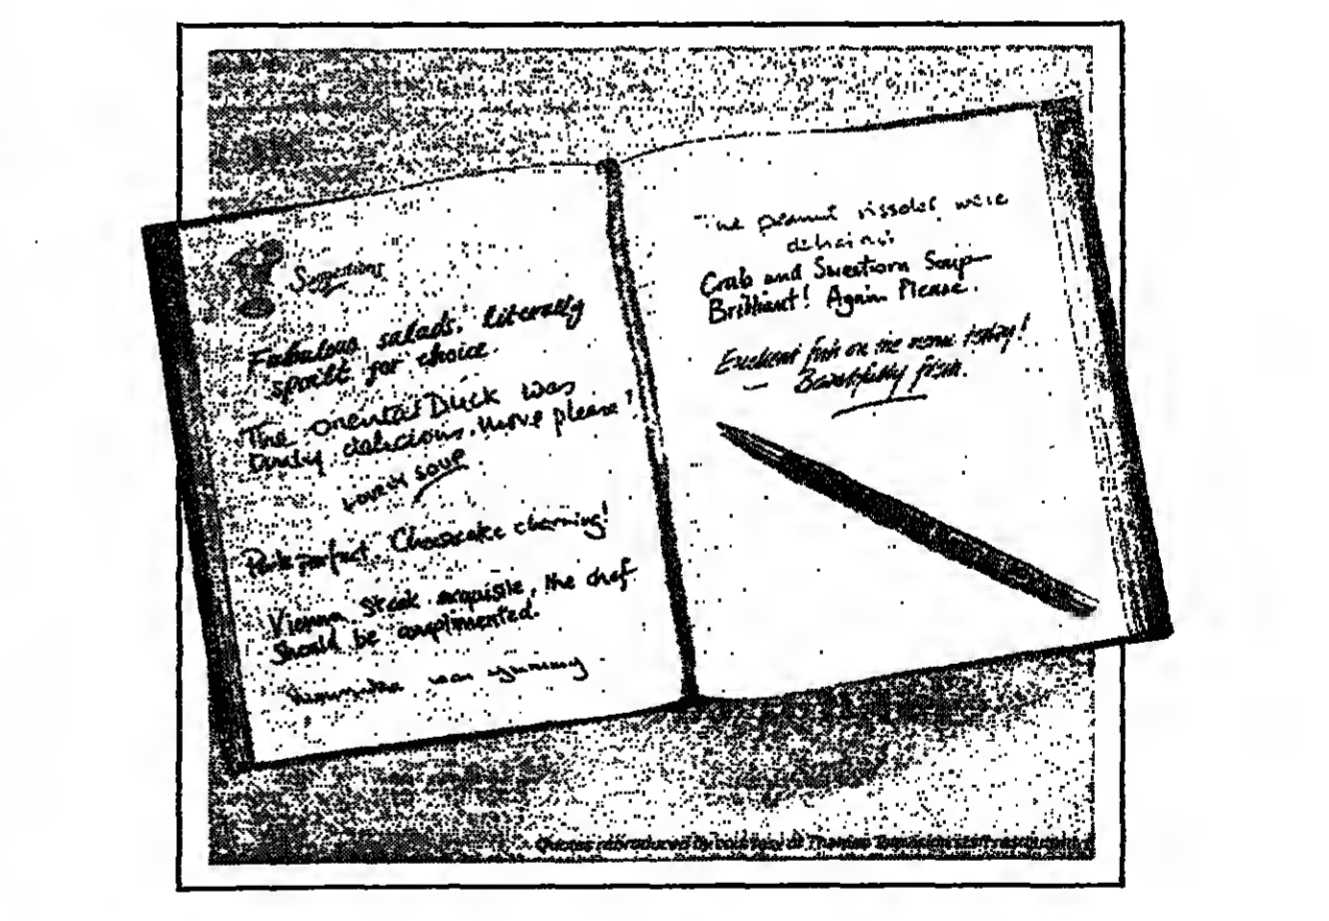 Suggestions
Fabulous salads, literally
spoilt for choice.
The oriental Duck was
delicious. More please!
Lovely soup
Pork perfect. Cheesecake charming!
Vienna Steak exquisite, the chef
should be complimented.
was yummy
The peanut rissoles were
delicious
Crab and Sweetcorn Soup
Brilliant! Again Please.
Excellent fish on the menu today!
— Beautifully fresh.
Quotes reproduced by courtesy of Thames Television staff restaurant